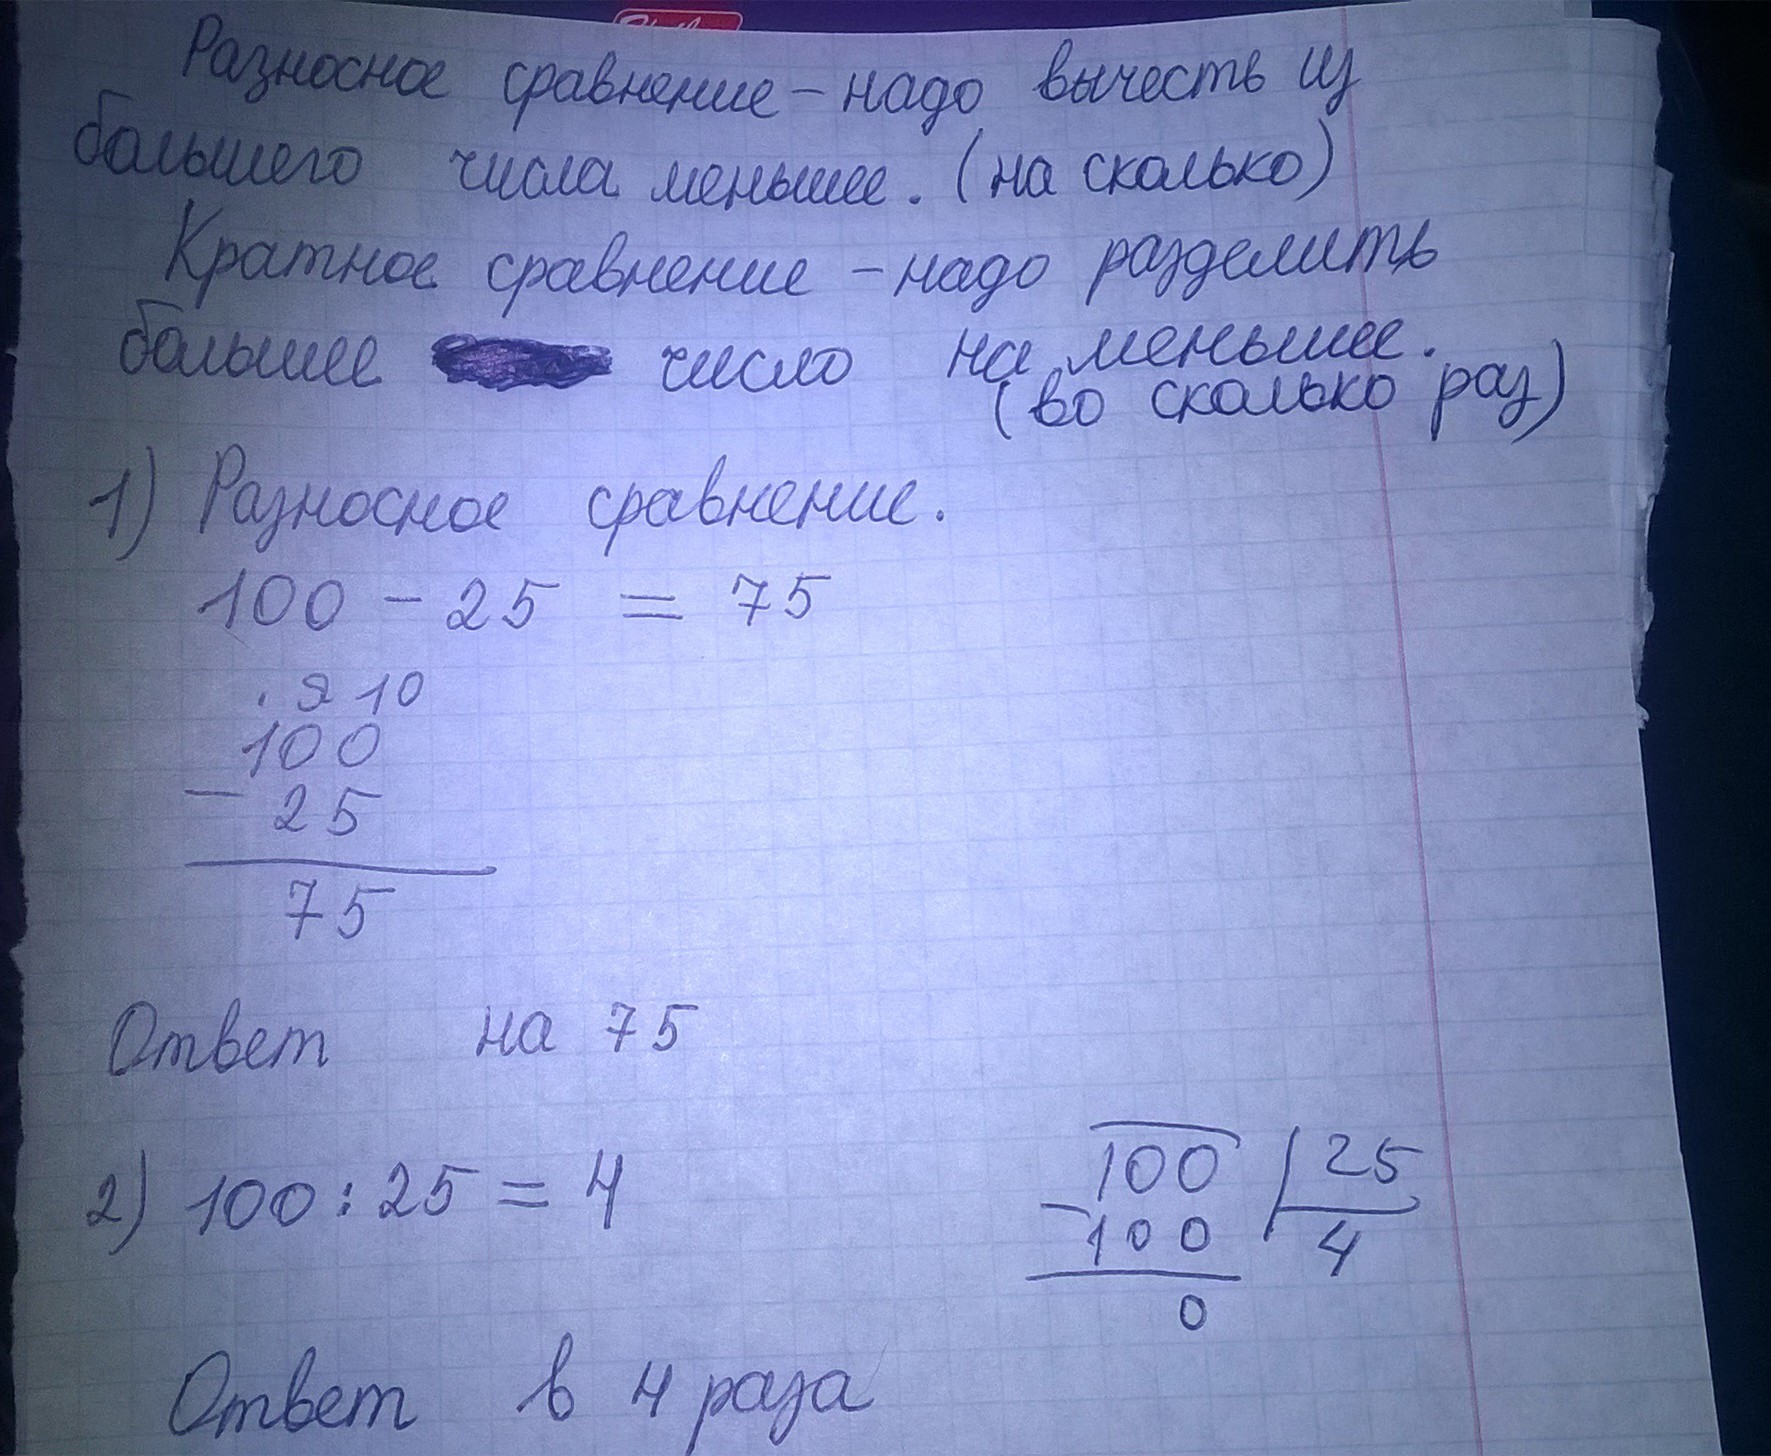 Разносное сравнение – надо вычесть из
большего числа меньшее. (на сколько)
Кратное сравнение – надо разделить
большее число на меньшее.
(во сколько раз)
1) Разносное сравнение.
100 – 25 = 75
. 9 10
100
– 25
75
Ответ на 75
2) 100 : 25 = 4
100 | 25
– 100 4
0
Ответ в 4 раза